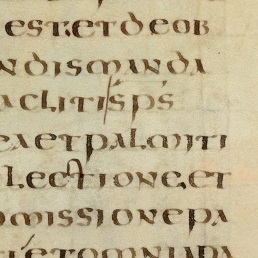 est. et deor
ndismanda
aclitis sps
ea et palmiti
lectione. et
omissione pa
et omnia pa